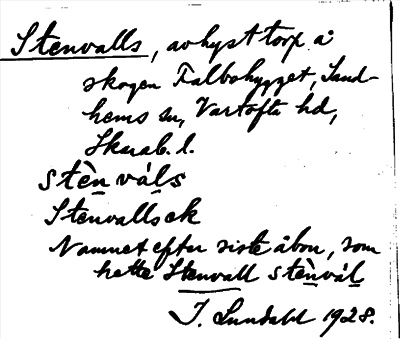 Stenvalls, avhyst torp å
skogen Falbohygget, Sand-
hems sn, Vartofta hd,
Skarab. l.
stèn vàls
Stenvallsek
Namnet efter siste åbon, som
hette Stenvall stènvál
I. Lundahl 1928.